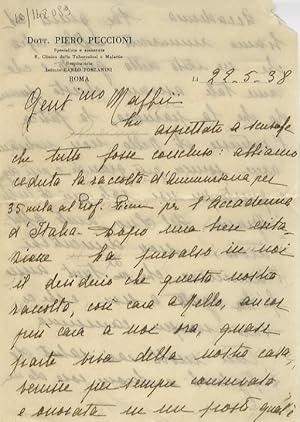 DOTT. PIERO PUCCIONI
Specialista e assistente
R. Clinica della Tubercolosi e Malattie
Respiratorie
Istituto CARLO FORLANINI
ROMA
li 22-5-38
Gent.mo Maffii
ho aspettato a
che tutto fosse concluso: abbiamo
ceduta la raccolta d'Annunziana per
35 mila al Prof. per l'Accademia
d'Italia. Dopo una breve esita-
zione ha prevalso in noi
il desiderio che questa nostra
raccolta, così cara a Nello, ancor
più cara a noi ora, quasi
parte viva della nostra casa,
venisse per sempre conservata
e onorata in un posto qual'è